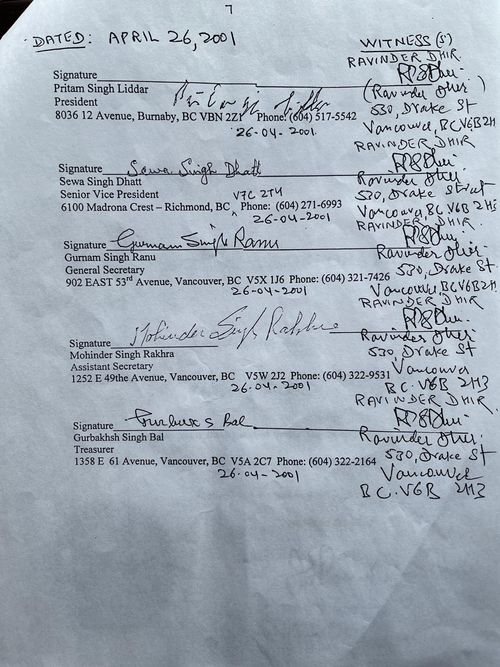 7
DATED: APRIL 26, 2001
WITNESS (S)
RAVINDER DHIR
Signature
Pritam Singh Liddar
President
8036 12 Avenue, Burnaby, BC VBN 2Z1 Phone: (604) 517-5542
26-04-2001
(Ravinder Dhir)
530, Drake St
Vancouver, BC V6B 2H3
RAVINDER DHIR
Signature Sewa Singh Dhatt
Sewa Singh Dhatt
Senior Vice President V7C 2T4
6100 Madrona Crest – Richmond, BC Phone: (604) 271-6993
26-04-2001
Ravinder Dhir
530, Drake Street
Vancouver, BC V6B 2H3
RAVINDER DHIR
Signature Gurnam Singh Ranu
Gurnam Singh Ranu
General Secretary
902 EAST 53rd Avenue, Vancouver, BC V5X 1J6 Phone: (604) 321-7426
26-04-2001
Ravinder Dhir
530, Drake St
Vancouver, BC V6B 2H3
RAVINDER DHIR
Signature Mohinder Singh Rakhra
Mohinder Singh Rakhra
Assistant Secretary
1252 E 49the Avenue, Vancouver, BC V5W 2J2 Phone: (604) 322-9531
26-04-2001
Ravinder Dhir
530, Drake St
Vancouver
B.C. V6B 2H3
RAVINDER DHIR
Signature Gurbux S Bal
Gurbakhsh Singh Bal
Treasurer
1358 E 61 Avenue, Vancouver, BC V5A 2C7 Phone: (604) 322-2164
26-04-2001
Ravinder Dhir
530, Drake St
Vancouver
B.C. V6B 2H3